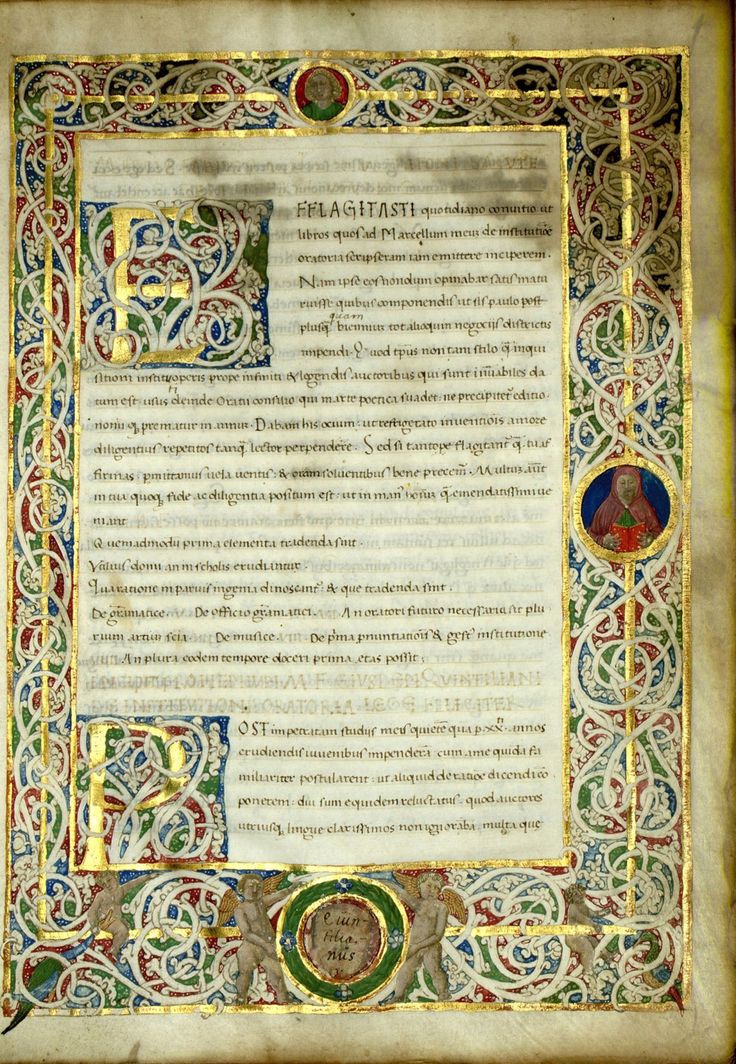 EFFLAGITASTI quotidiano conuitio ut
libros quos ad Marcellum meuȝ de institutiōe
oratoria scripseram iam emittere inciperem.
Nam ipse eos nondum opinabar satis matu
ruisse quibus componendis ut sis paulo post
quam
plusq̄ biennium tot alioquin negocijs districtis
impendi. Quod tp̄us non tam stilo q̄ inqui
sitioni operis prope infiniti & legendis auctoribus qui sunt
tum est. usus deinde Oratii consilio qui in arte poetica suadet: ne precipitet᷑ editio.
prematur in annū. Dabam his ocium: ut refrigerato inuentiōis amore
diligentius repetitos tanq̄ lector perpenderē. Sed si tantope flagitant᷑ q̄ tu af
firmas: ꝑmittamus uela uentis: & oram soluentibus bene precem᷑. Multuȝ aūt
in tua quoq; fide ac diligentia positum est: ut in man᷒ q̄ emendatissimi ue
niant.
Quemadmodū prima elementa tradenda sint.
Vtilius domi an in scholis erudiantur.
Qua ratione in paruis ingenia dinoscant᷑: & que tradenda sint.
De grāmatice. De officio grāmatici. An oratori futuro necessaria sit plu
rium artium scīa. De musice. De pͥma ꝓnuntiatiōis & gest᷒ institutione
An plura eodem tempore doceri prima etas possit:
POST impetratam studijs meis quietē qua p̄ xx annos
erudiendis iuuenibus impenderā cum a me quidā fa
miliariter postularent: ut aliquid de ratiōe dicendi cō
ponerem: diu sum equidem reluctatus. quod auctores
utriusq; lingue clarissimos non ignorabā, multa que
Quin-
tilia-
nus